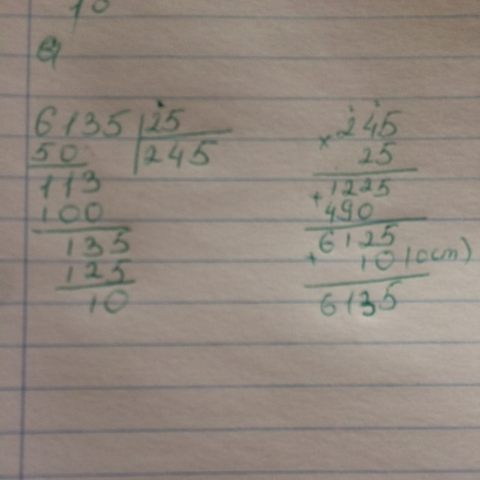 10
e)
6135 | 25
50 | 245
113
100
135
125
10
245
× 25
1225
+ 490
6125
+ 10 (ост)
6135